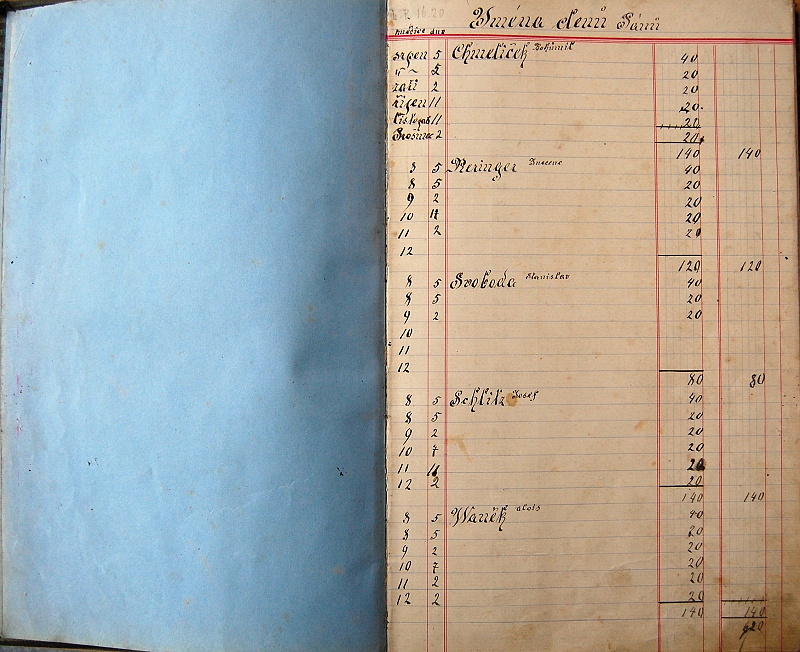 16.20
Yména členů Pánů
měsíce dne
srpen 5 Chmelíček Bohumil 40
" ~ 5 20
září 2 20
říjen 11 20
listopad 11 20
Prosinec 2 20
140 140
8 5 Neringer 40
8 5 20
9 2 20
10 11 20
11 2 20
12
120 120
8 5 Svoboda Stanislav 40
8 5 20
9 2 20
10
11
12
80 80
8 5 Schlitz Josef 40
8 5 20
9 2 20
10 7 20
11 11 20
12 2 20
140 140
8 5 Waněk alois 40
8 5 20
9 2 20
10 7 20
11 2 20
12 2 20
140 140
620